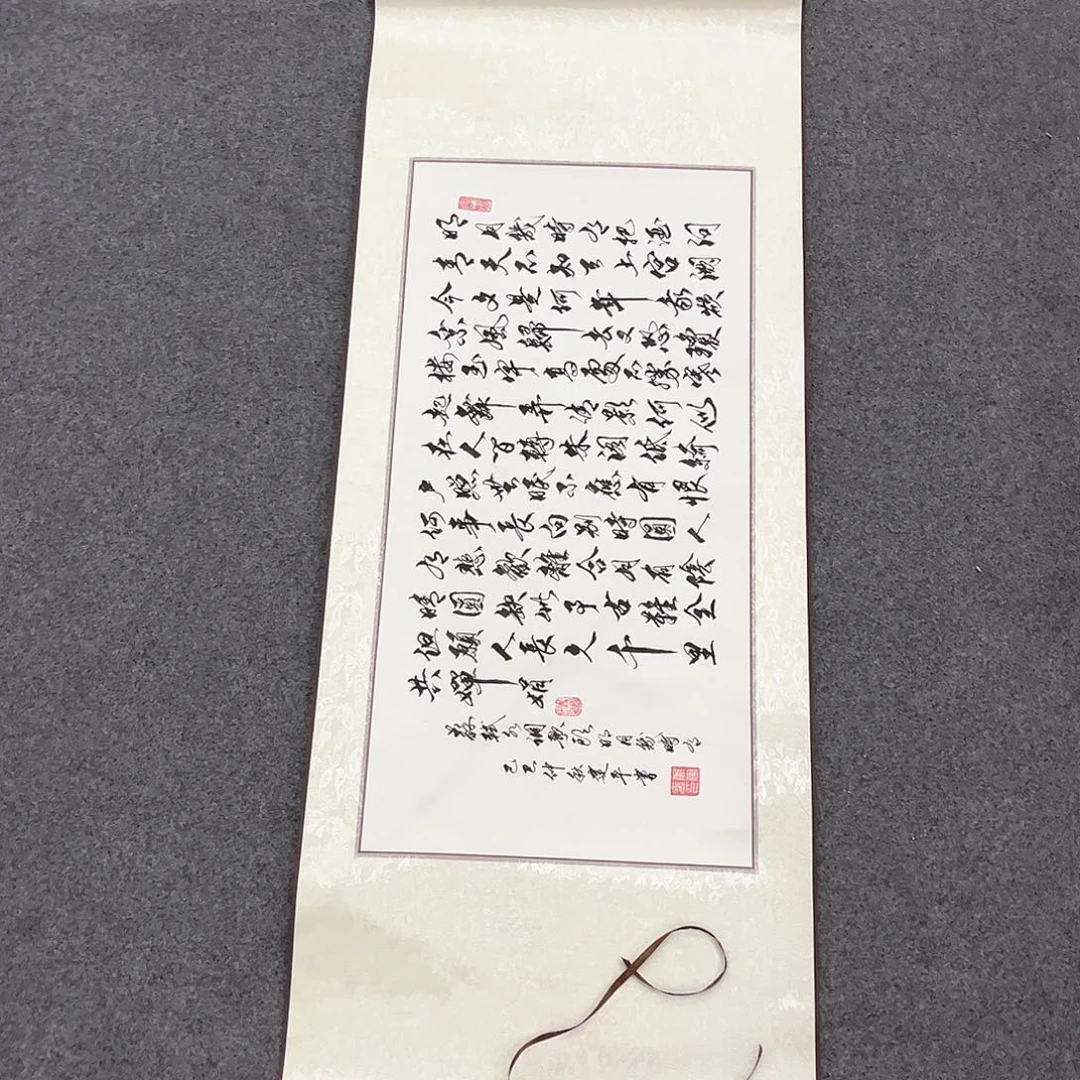 明月幾時有把酒問
青天不知天上宮闕
今夕是何年我欲
乘風歸去又恐瓊
樓玉宇高處不勝寒
起舞弄清影何似
在人間轉朱閣低綺
戶照無眠不應有恨
何事長向別時圓人
有悲歡離合月有陰
晴圓缺此事古難全
但願人長久千里
共嬋娟
蘇軾水調歌頭明月幾時有
巳仲秋建平書